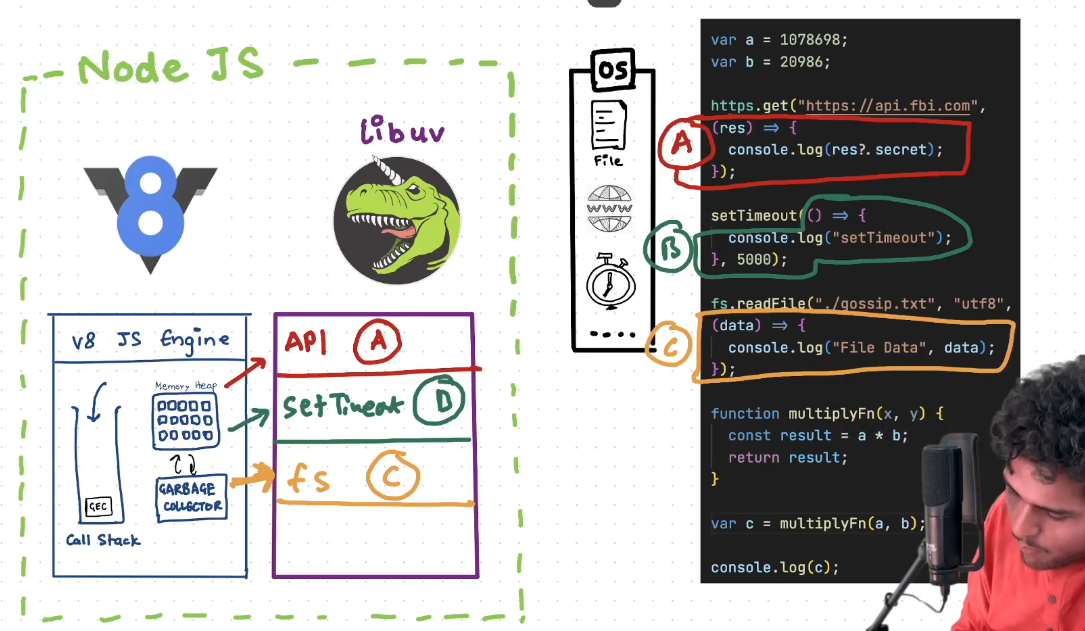 Node JS
libuv
V8 JS Engine
Memory Heap
GARBAGE
COLLECTOR
GEC
Call Stack
API A
setTimeout B
fs C
OS
File
WWW
A
B
C
var a = 1078698;
var b = 20986;
https.get("https://api.fbi.com",
(res) => {
console.log(res?.secret);
});
setTimeout(() => {
console.log("setTimeout");
}, 5000);
fs.readFile("./gossip.txt", "utf8",
(data) => {
console.log("File Data", data);
});
function multiplyFn(x, y) {
const result = a * b;
return result;
}
var c = multiplyFn(a, b);
console.log(c);